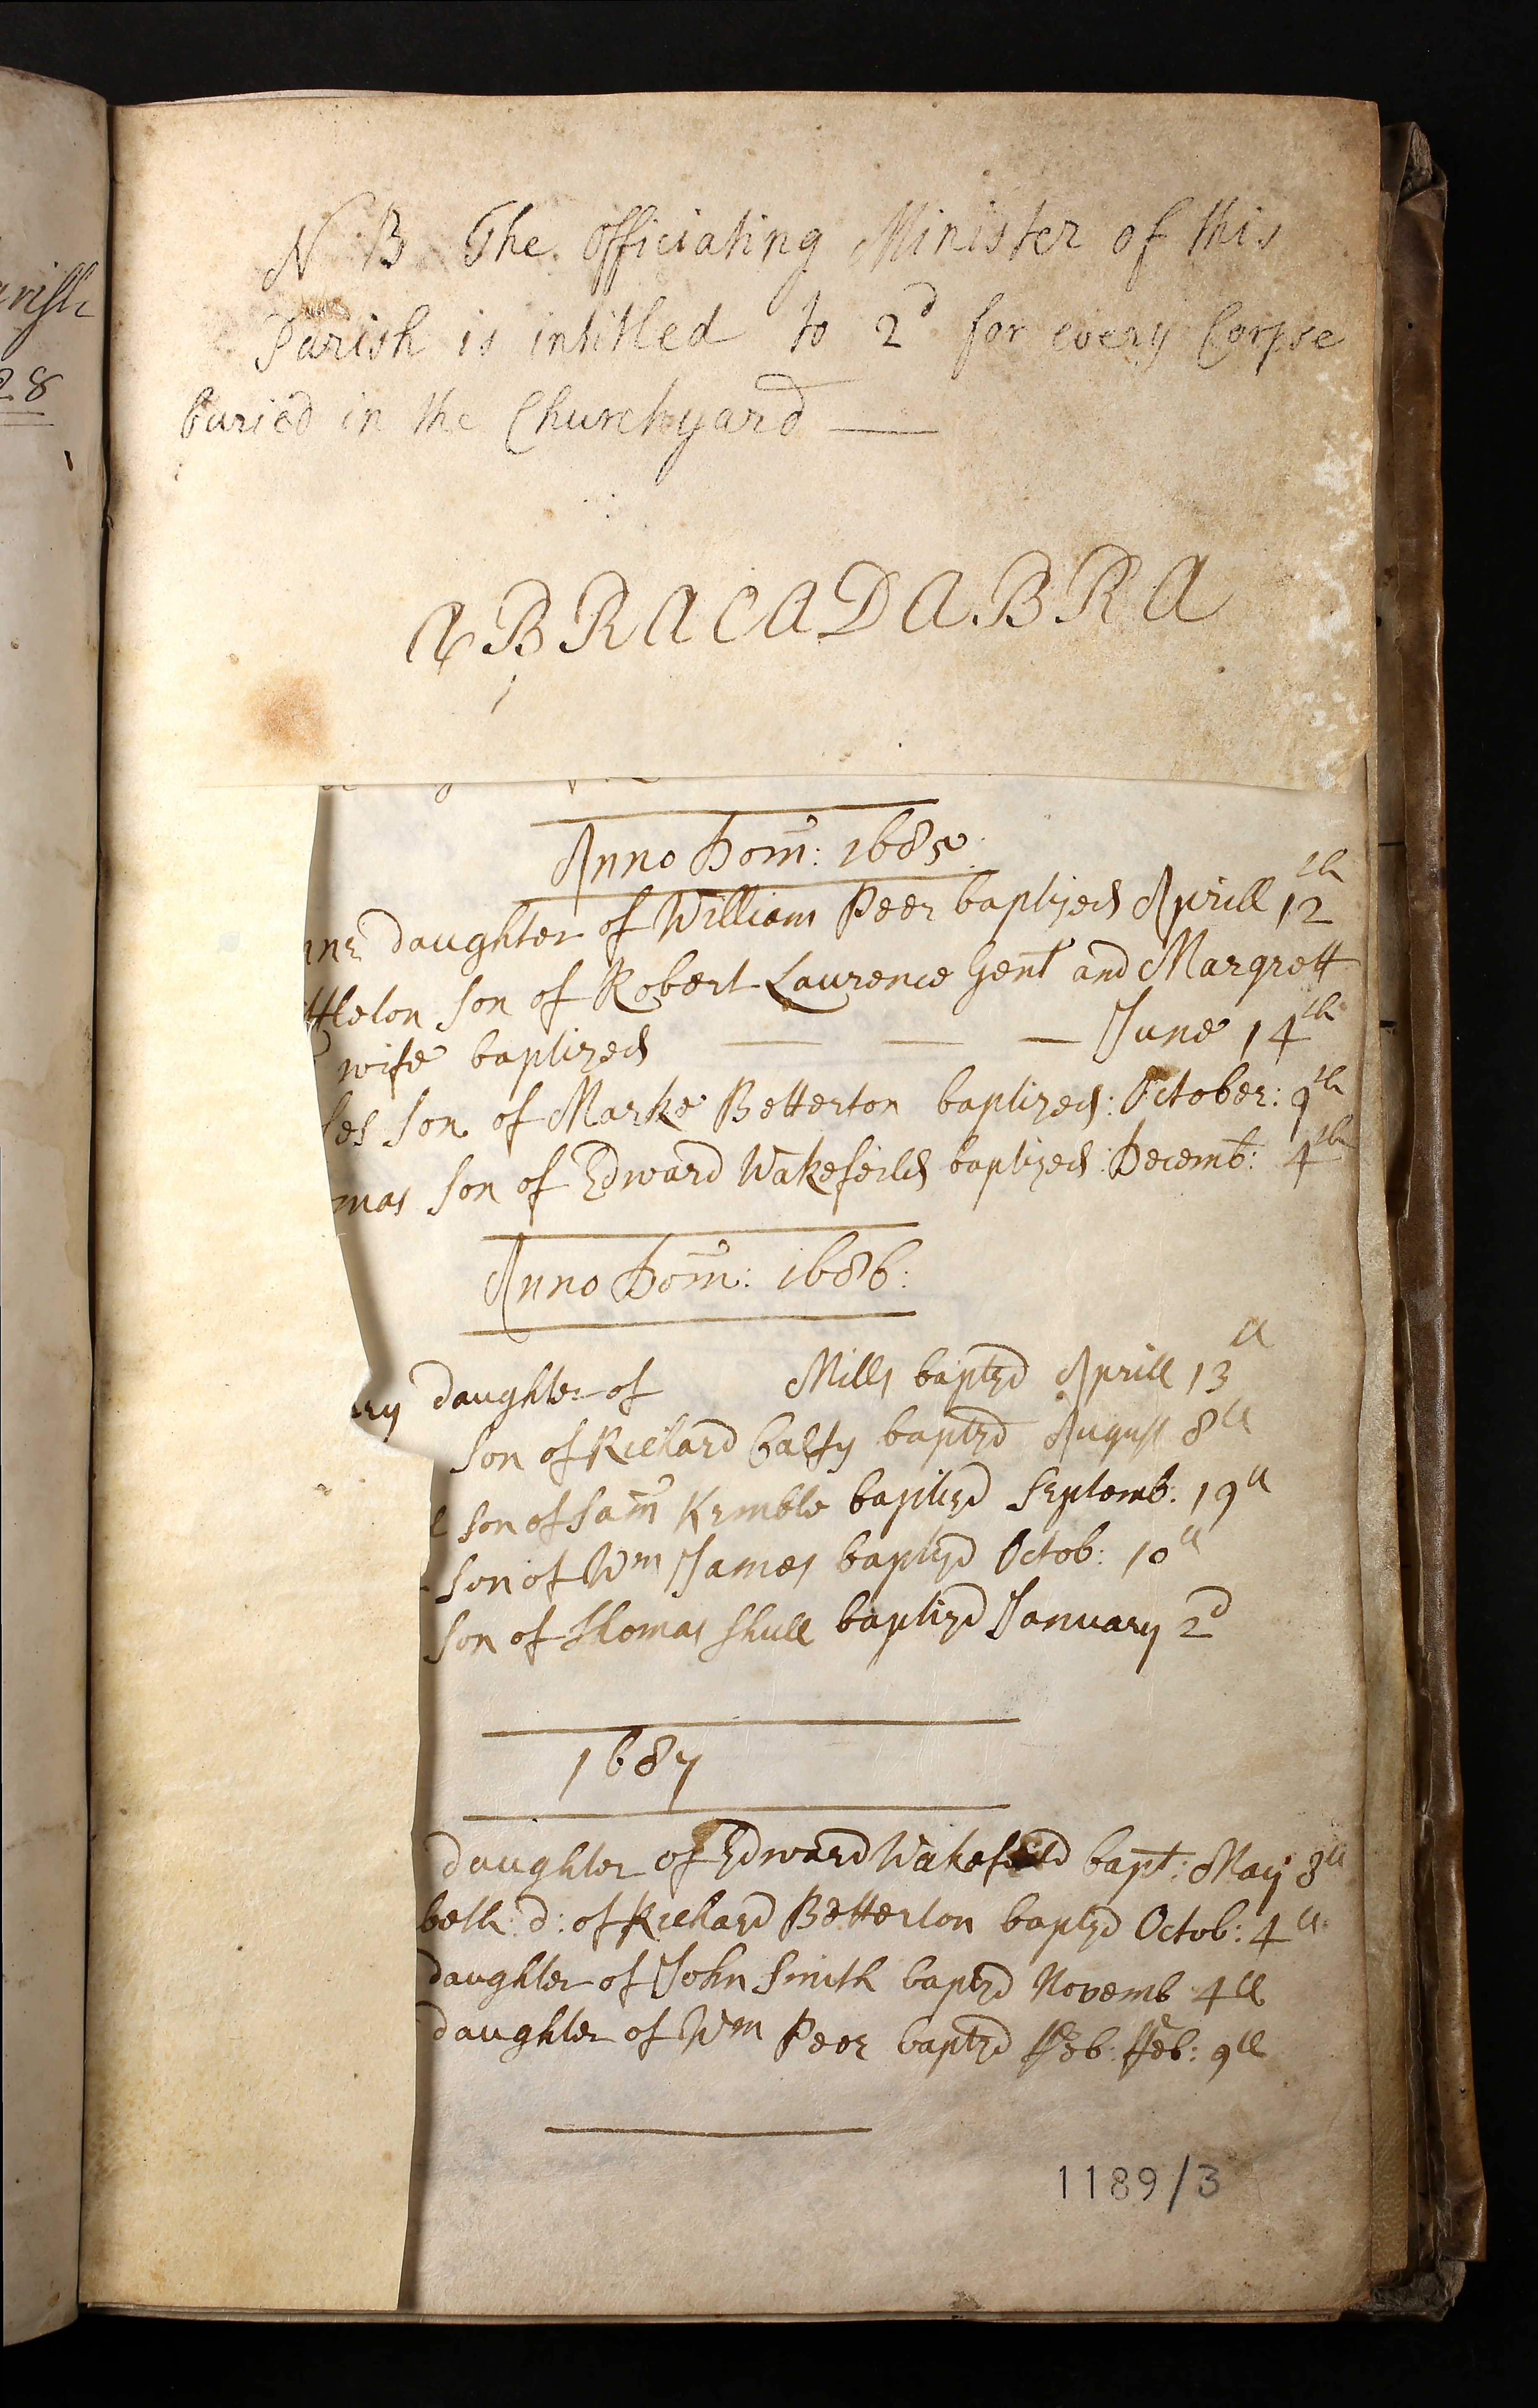 28
N B The officiating Minister of this
Parish is intitled to 2d for every Corpse
buried in the Churchyard
ABRACADABRA
Anno Dom: 1685
daughter of William Peer baptized Aprill 12th
son of Robert Laurence Gent and Margrett
wife baptized — — — June 14th
son of Marke Betterton baptized: October: 9th
mas son of Edward Wakefeild baptized: Decemb: 4th
Anno Dom: 1686:
ry daughter of Mills baptzd Aprill 13th
son of Richard baptzd August 8th
son of Sam Kemble baptizd Septemb. 19th
son of Wm James baptizd Octob: 10th
son of Thomas Shull baptizd January 2d
1687
daughter of Edward Wakefeild bapt: May 8th
beth d: of Richard Betterton baptzd Octob: 4th
daughter of John Smith baptzd Novemb 4th
daughter of Wm Peer baptzd ffeb: ffeb: 9th
1189/3